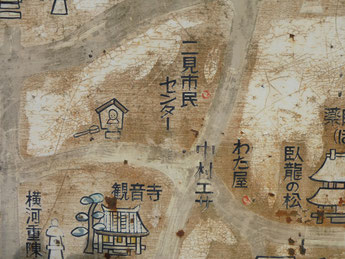 二見市民
センター
わた屋
中村工
臥龍の松
観音寺
横河重陳